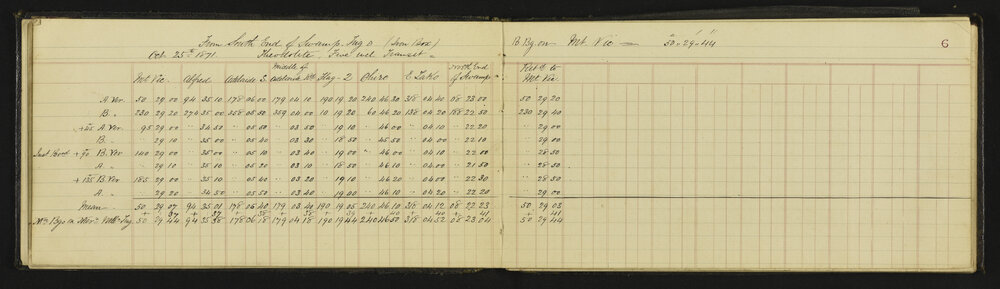 From South End of Swamp. Trig D (Iron Box) B Bg on Mt Vic — 50-29-44 6
Oct 25th 1871. Theodolite, Five inch Transit
Mt Vic. Alfred Adelaide S. Middle of Adelaide Mt Flag-2 Obire E Taho North End of Swamp Ret'd to Mt Vic
A Ver. 50 29 00 94 35 10 178 06 00 179 04 10 190 19 20 240 46 30 318 04 40 08 23 00 50 29 20
B " 230 29 20 274 35 00 358 05 50 359 04 00 10 19 20 60 46 20 138 04 20 188 22 50 230 29 40
+45 A Ver. 95 29 00 " 34 50 " 05 50 " 03 50 " 19 10 " 46 00 " 04 10 " 22 20 " 29 00
B " " 29 10 " 35 00 " 05 40 " 03 30 " 18 50 " 45 50 " 04 00 " 22 10 " 29 00
Inst Revd +90 B. Ver 140 29 00 " 35 00 " 05 10 " 03 40 " 19 00 " 46 00 " 04 10 " 22 00 " 28 50
A " " 29 10 " 35 10 " 05 20 " 03 10 " 18 50 " 46 10 " 04 00 " 21 50 " 28 50
+135 B Ver 185 29 00 " 35 10 " 05 40 " 03 20 " 19 10 " 46 20 " 04 00 " 22 30 " 28 50
A " " 29 20 " 34 50 " 05 50 " 03 40 " 19 00 " 46 10 " 04 20 " 22 20 " 29 00
Mean 50 29 07 94 35 01 178 05 40 179 03 40 190 19 05 240 46 10 318 04 12 08 22 23 50 29 03
+ 37 + 37 + 38 + 38 + 39 + 40 + 40 + 41 + 41
50 29 44 94 35 38 178 06 18 179 04 18 190 19 44 240 46 50 318 04 52 08 23 04 50 29 44